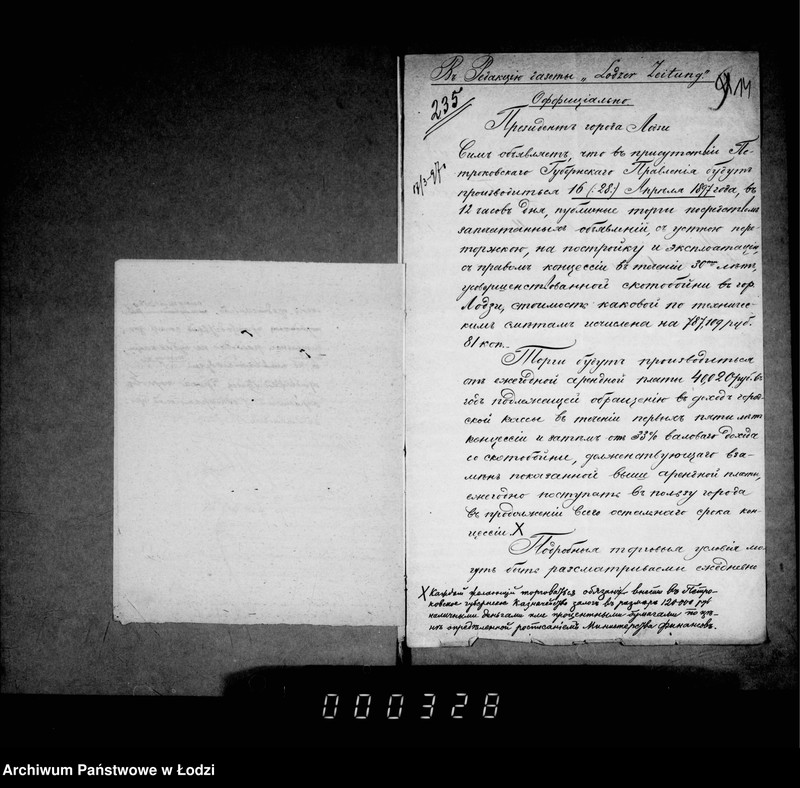 Въ Редакцію газеты „Lodzer Zeitung“
14
235
Оффиціально
Президентъ города Лодзи
Симъ объявляетъ, что въ присутствіи Пе-
троковскаго Губернскаго Правленія будутъ
производиться 16 (:28:) Апрѣля 1897 года, въ
12 часовъ дня, публичные торги посредствомъ
запечатанныхъ объявленій, съ устною пере-
торжкою, на постройку и эксплоатацію,
съ правомъ концессіи въ теченіи 30 лѣтъ,
усовершенствованной скотобойни въ гор.
Лодзи, стоимость каковой по техничес-
кимъ смѣтамъ исчислена на 787,109 руб.
81 коп.
Торги будутъ производиться
отъ ежегодной арендной платы 40020 руб. въ
годъ подлежащей обращенію въ доходъ город-
ской кассы въ теченіи первыхъ пяти лѣтъ
концессіи и затѣмъ отъ 33% валоваго дохода
со скотобойни, долженствующаго вза-
мѣнъ показанной выше арендной платы,
ежегодно поступать въ пользу города
въ продолженіи всего остальнаго срока кон-
цессіи. X
Подробныя торговыя условія мо-
гутъ быть разсматриваемы ежедневно
X Каждый желающій торговаться обязанъ внести въ Петро-
ковское губернское Казначейство залогъ въ размѣрѣ 120.000 руб
наличными деньгами или процентными бумагами по цѣ-
нѣ опредѣленной росписаніемъ Министерства финансовъ.
000328
Archiwum Państwowe w Łodzi